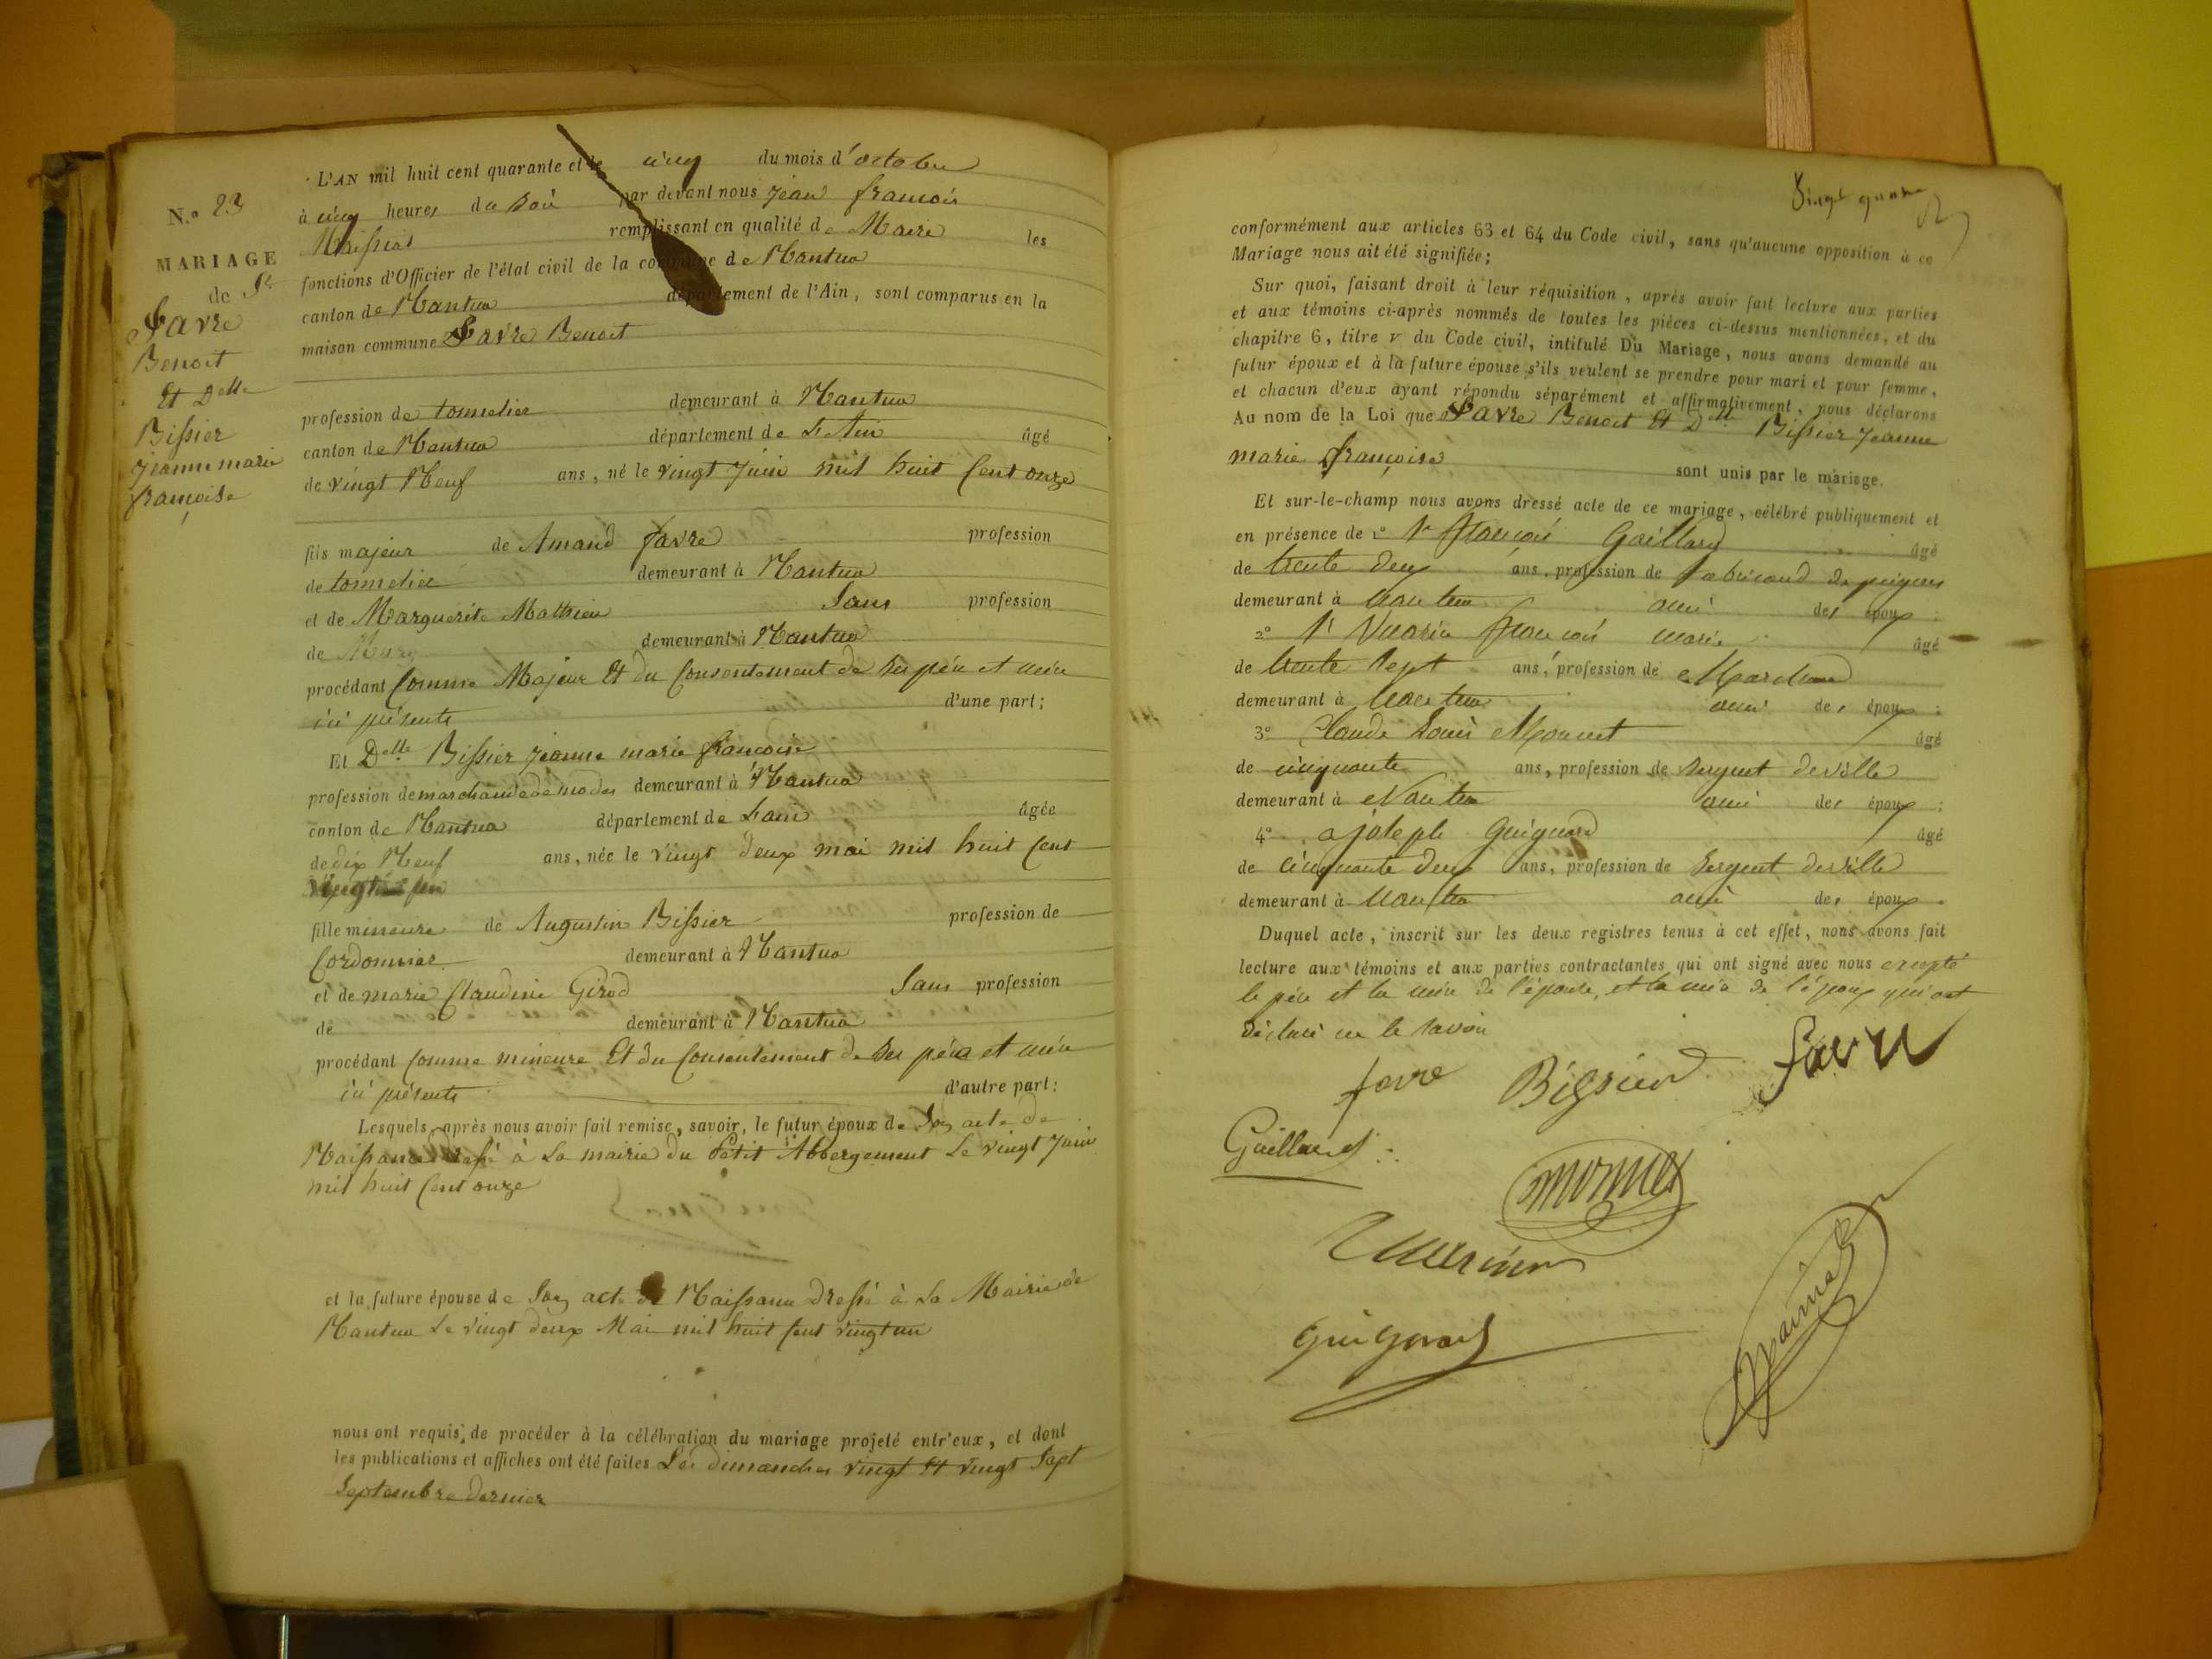 N.º 23
MARIAGE
de Sr
Favre
Benoit
Et Delle
Bissier
jeanne marie
françoise
L'AN mil huit cent quarante et le cinq du mois d'octobre
à cinq heures du soir par devant nous jean francois
remplissant en qualité de Maire les
fonctions d'Officier de l'état civil de la commune de Nantua
canton de Nantua département de l'Ain, sont comparus en la
maison commune Favre Benoit
profession de tonnelier demeurant à Nantua
canton de Nantua département de L'Ain âgé
de vingt Neuf ans, né le vingt juin mil huit Cent onze
fils majeur de Amand favre profession
de tonnelier demeurant à Nantua
et de Marguerite Mathieu Sans profession
de demeurant à Nantua
procédant Comme Majeur Et du Consentement de ses père et mère
ici présents d'une part;
Et Delle Bissier jeanne marie francoise
profession de marchande de modes demeurant à Nantua
canton de Nantua département de L'ain âgée
de dix Neuf ans, née le vingt deux mai mil huit Cent
vingt un
fille mineure de Augustin Bissier profession de
Cordonnier demeurant à Nantua
et de marie Claudine Girod Sans profession
de demeurant à Nantua
procédant Comme mineure Et du Consentement de ses père et mère
ici présents d'autre part:
Lesquels après nous avoir fait remise, savoir, le futur époux de Son acte de
Naissance dressé à La mairie du Petit Abbergement Le vingt juin
mil huit Cent onze
et la future épouse de Son acte de Naissance dressé à La Mairie de
Nantua Le vingt deux Mai mil huit Cent vingt un
nous ont requis de procéder à la célébration du mariage projeté entr'eux, et dont
les publications et affiches ont été faites Les dimanches vingt Et vingt Sept
Septembre dernier
conformément aux articles 63 et 64 du Code civil, sans qu'aucune opposition à ce
Mariage nous ait été signifiée;
Sur quoi, faisant droit à leur réquisition, après avoir fait lecture aux parties
et aux témoins ci-après nommés de toutes les pièces ci-dessus mentionnées, et du
chapitre 6, titre V du Code civil, intitulé Du Mariage, nous avons demandé au
futur époux et à la future épouse s'ils veulent se prendre pour mari et pour femme,
et chacun d'eux ayant répondu séparément et affirmativement, nous déclarons
Au nom de la Loi que Favre Benoit Et Delle Bissier jeanne
marie françoise sont unis par le mariage.
Et sur-le-champ nous avons dressé acte de ce mariage, célébré publiquement et
en présence de 1º Sr François Gaillard âgé
de trente deux ans, profession de fabricand de peignes
demeurant à Nantua ami des époux;
2º Sr François marie âgé
de trente sept ans, profession de Marchand
demeurant à Nantua ami des époux;
3º Claude Louis Mornet âgé
de cinquante ans, profession de sergent de ville
demeurant à Nantua ami des époux;
4º joseph Guignard âgé
de cinquante deux ans, profession de sergent de ville
demeurant à Nantua ami des époux.
Duquel acte, inscrit sur les deux registres tenus à cet effet, nous avons fait
lecture aux témoins et aux parties contractantes qui ont signé avec nous excepté
le père et la mère de l'épouse, et la mère de l'époux qui ont
déclaré ne le savoir
favre Bissier favre
Gaillard
mornet
Guignard